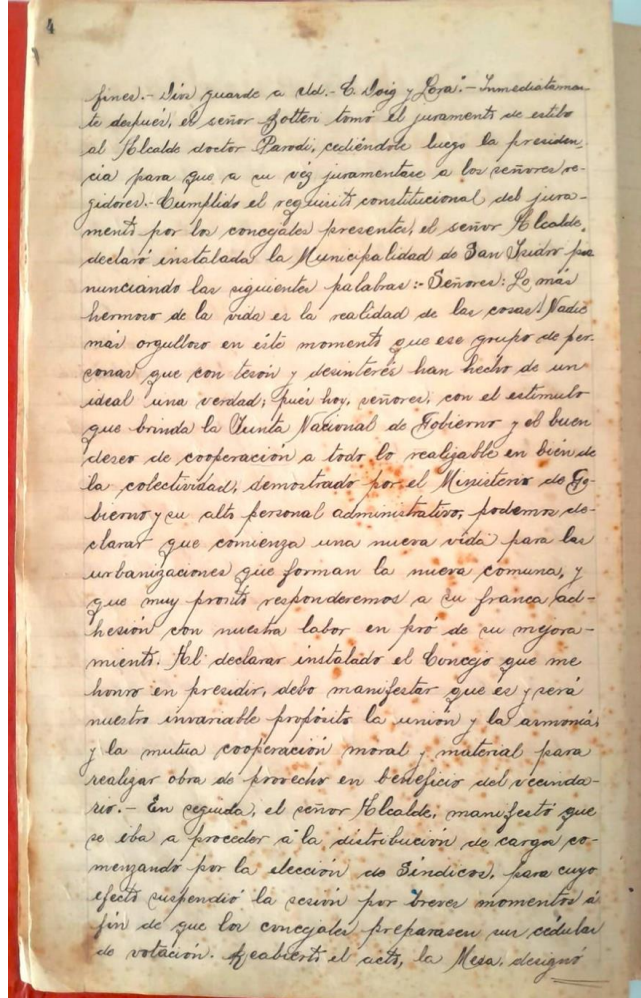 4
fines.- Dios guarde a Ud.- E. Doig y Lora".- Inmediatamen-
te después, el señor tomó el juramento de estilo
al Alcalde doctor Parodi, cediéndole luego la presiden-
cia para que a su vez juramentase a los señores re-
gidores.- Cumplido el requisito constitucional del jura-
mento por los concejales presentes, el señor Alcalde,
declaró instalada la Municipalidad de San Isidro pro-
nunciando las siguientes palabras:- Señores: Lo más
hermoso de la vida es la realidad de las cosas! Nadie
más orgulloso en éste momento que ese grupo de per-
sonas que con tesón y desinterés han hecho de un
ideal una verdad; pues hoy, señores, con el estímulo
que brinda la Junta Nacional de Gobierno y el buen
deseo de cooperación a todo lo realizable en bién de
la colectividad, demostrado por el Ministerio de Go-
bierno y su alto personal administrativo, podemos de-
clarar que comienza una nueva vida para las
urbanizaciones que forman la nueva comuna, y
que muy pronto responderemos a su franca ad-
hesión con nuestra labor en pró de su mejora-
miento. Al declarar instalado el Concejo que me
honro en presidir, debo manifestar que es y será
nuestro invariable propósito la unión y la armonía,
y la mutua cooperación moral y material para
realizar obra de provecho en beneficio del vecinda-
rio.- En seguida, el señor Alcalde, manifestó que
se iba a proceder a la distribución de cargos co-
menzando por la elección de Síndicos, para cuyo
efecto suspendió la sesión por breves momentos á
fin de que los concejales preparasen sus cédulas
de votación. Reabierto el acto, la Mesa, designó